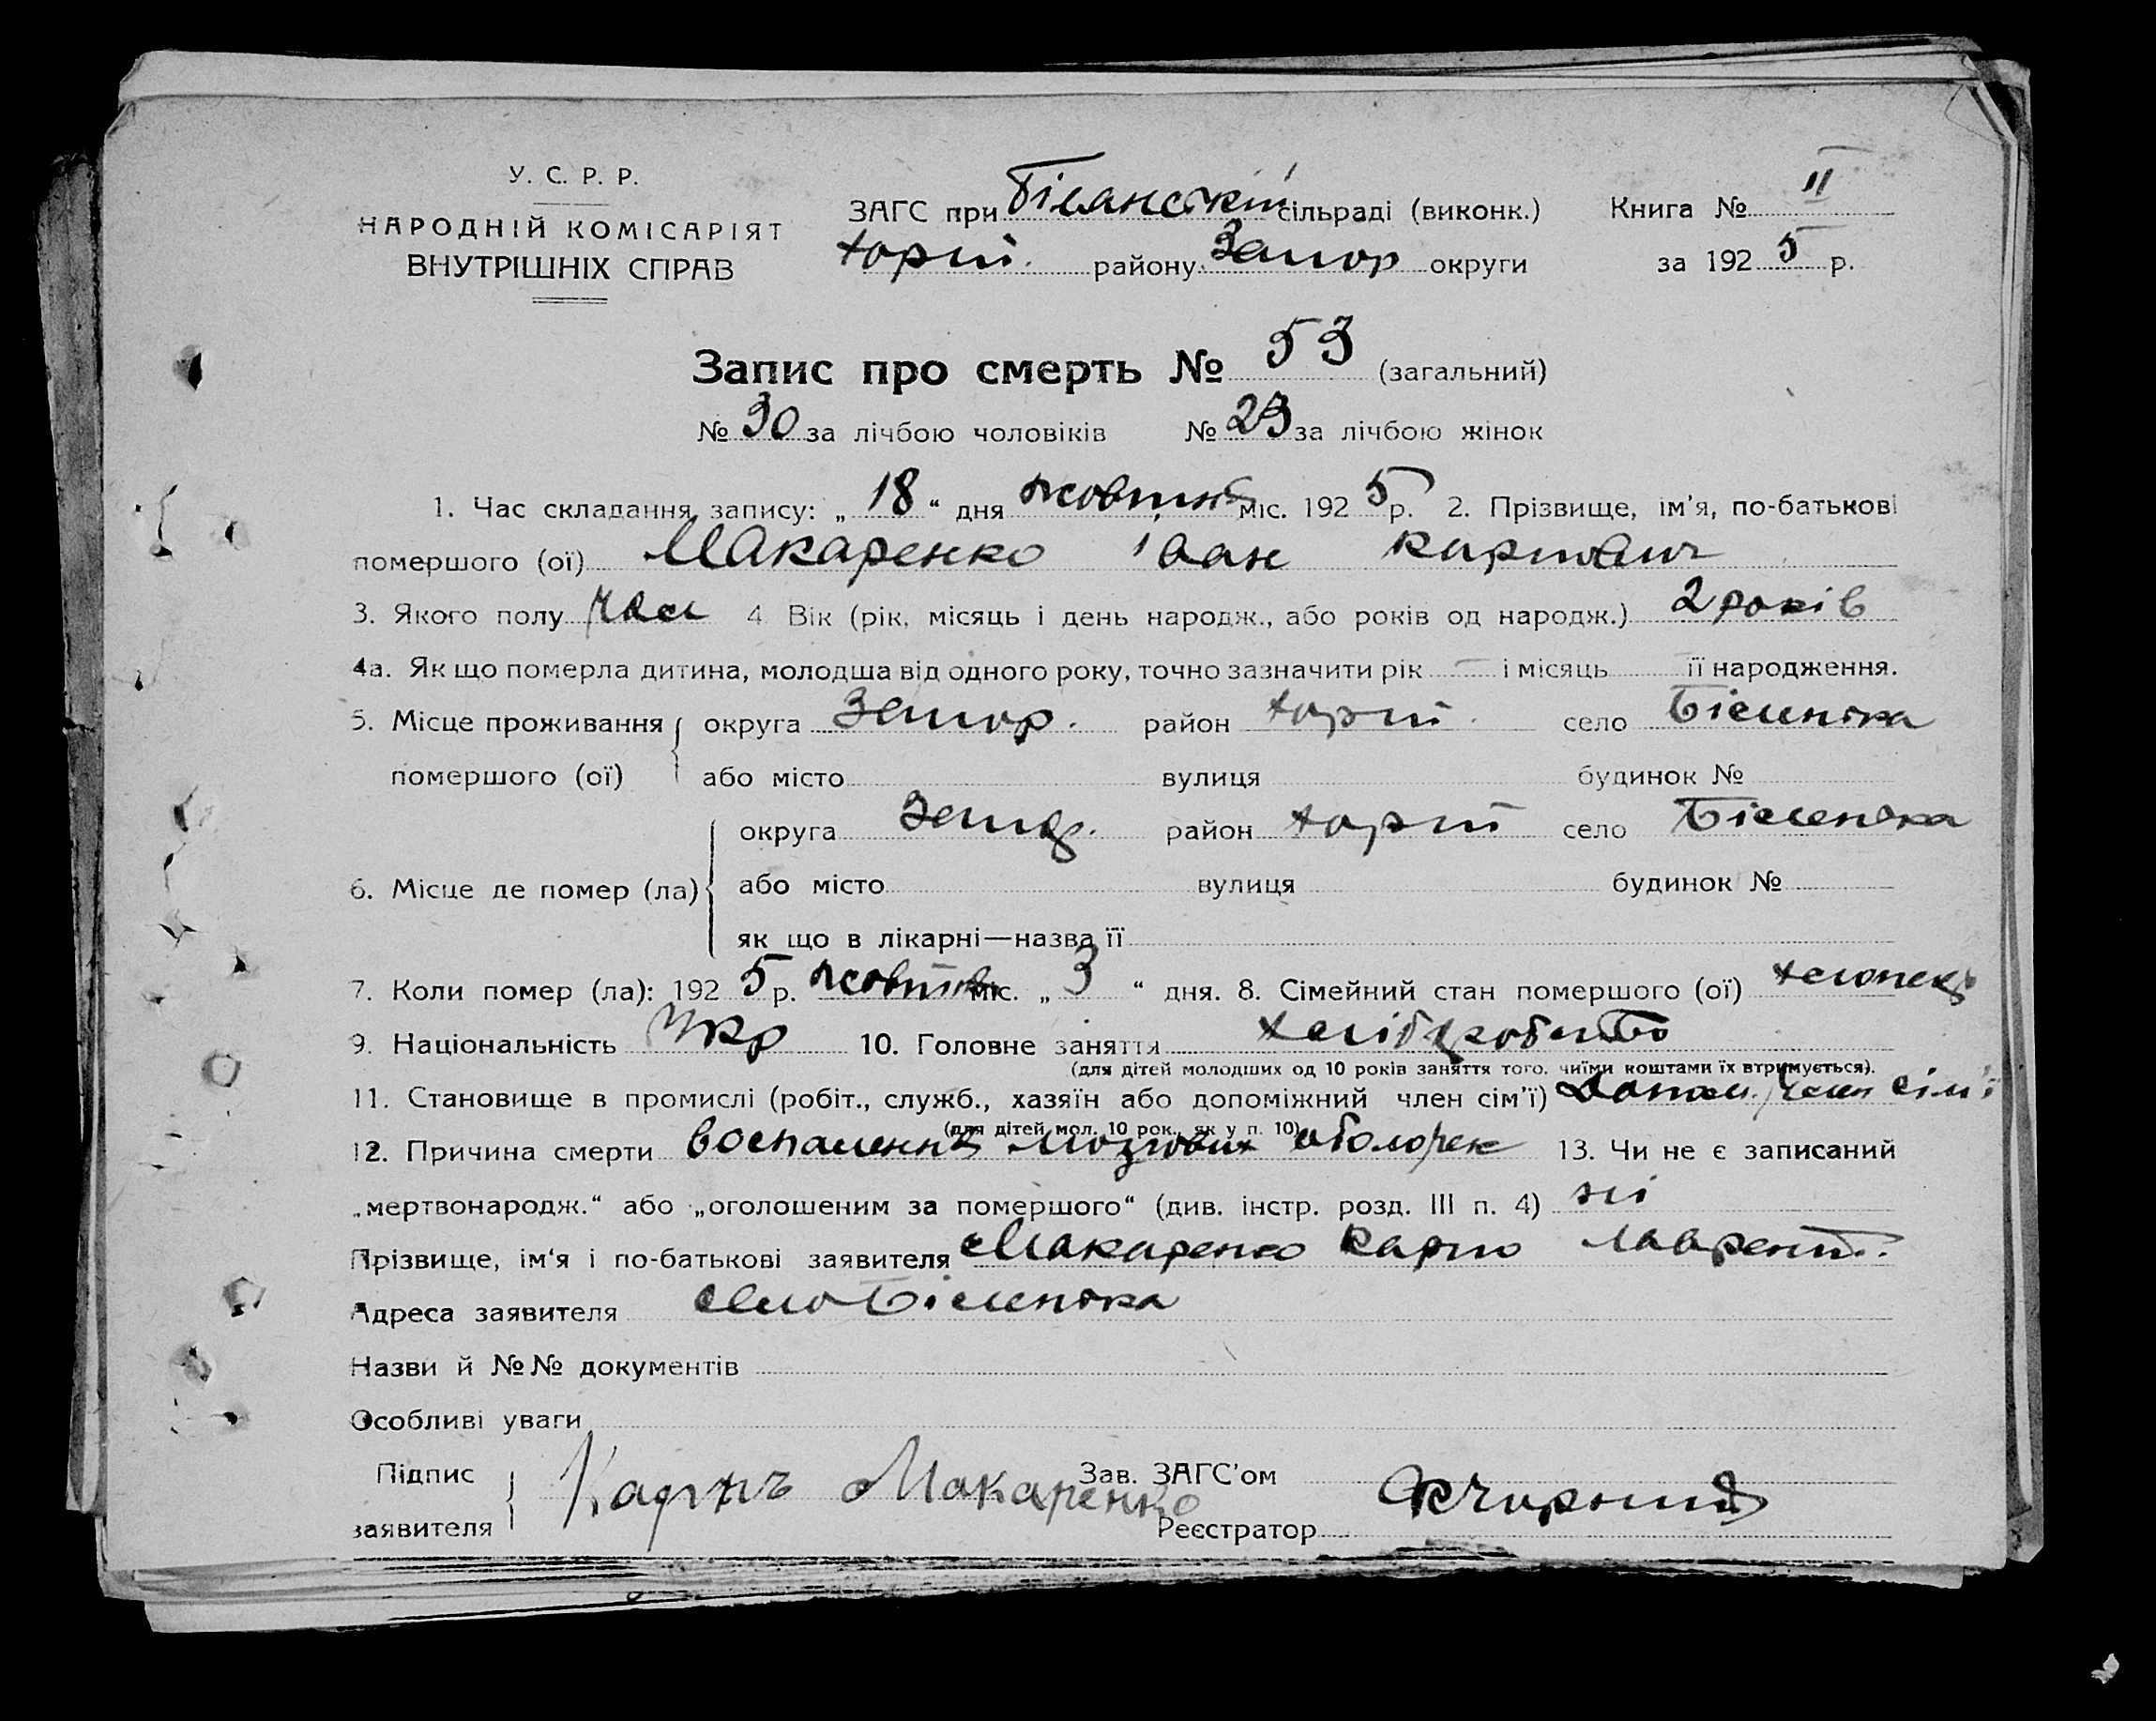 У. С. Р. Р.
НАРОДНІЙ КОМІСАРІЯТ
ВНУТРІШНІХ СПРАВ
ЗАГС при Біленській сільраді (виконк.)
Хорт. району Запор округи
Книга № II
за 1925 р.
Запис про смерть № 53 (загальний)
№ 30 за лічбою чоловіків № 23 за лічбою жінок
1. Час складання запису: „18“ дня жовтня міс. 1925 р. 2. Прізвище, ім'я, по-батькові
помершого (ої) Макаренко Іван Карпович
3. Якого полу чол 4 Вік (рік, місяць і день народж., або років од народж.) 2 років
4а. Як що померла дитина, молодша від одного року, точно зазначити рік — і місяць її народження.
5. Місце проживання помершого (ої) округа Запор. район Хорт. село Біленька
або місто вулиця будинок №
6. Місце де помер (ла) округа Запор. район Хорт село Біленька
або місто вулиця будинок №
як що в лікарні—назва її
7. Коли помер (ла): 1925 р. жовтня міс. „3“ дня. 8. Сімейний стан помершого (ої) хлопець
9. Національність Укр 10. Головне заняття хліборобство
(для дітей молодших од 10 років заняття того, чиїми коштами їх втримується).
11. Становище в промислі (робіт., служб., хазяїн або допоміжний член сім'ї) допом. член сім'ї
(для дітей мол. 10 рок., як у п. 10)
12. Причина смерти воспалення мозгових оболочек 13. Чи не є записаний
„мертвонародж.“ або „оголошеним за помершого“ (див. інстр. розд. III п. 4) ні
Прізвище, ім'я і по-батькові заявителя Макаренко Карпо Лаврент.
Адреса заявителя село Біленька
Назви й №№ документів
Особливі уваги
Підпис заявителя Карпъ Макаренко
Зав. ЗАГС'ом
Реєстратор